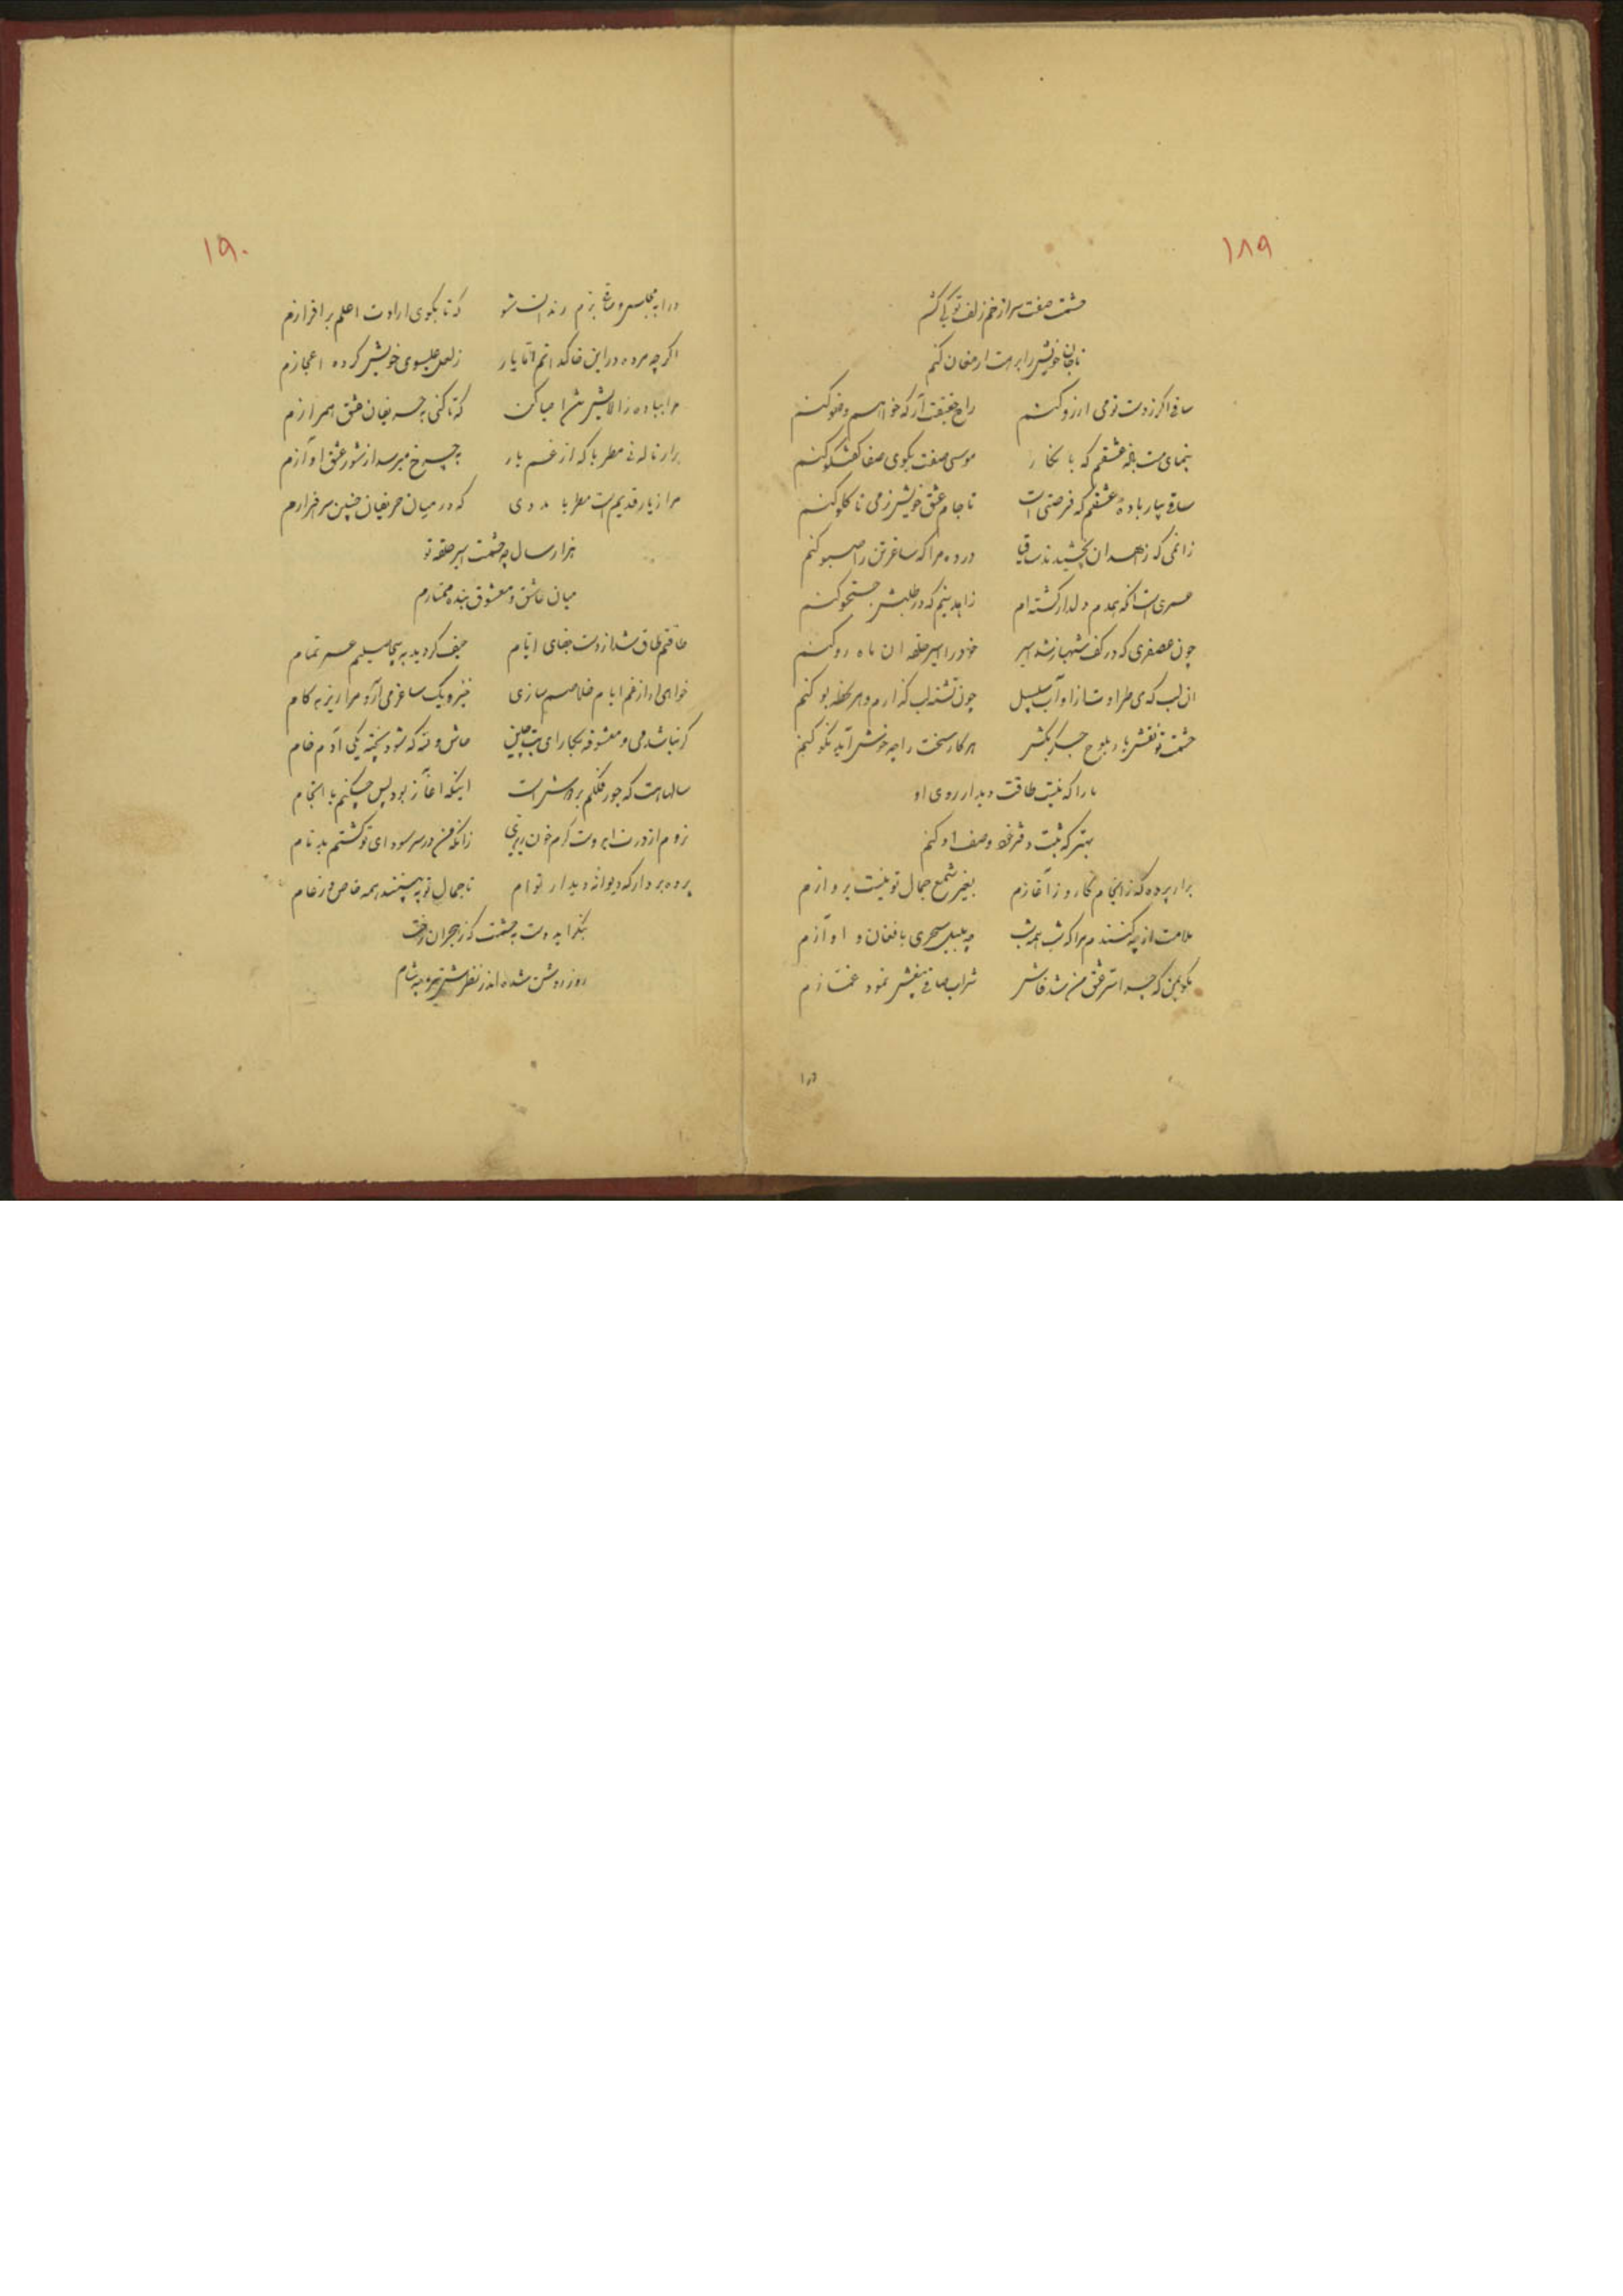 ۱۸۹
حشمت صفت سر از خم زلف تو کی کشم
تا جان خویش را برهت ارمغان کنم
ساقی اگر ز دست تو می ارزو کنم
راح حقیقت آر که خواهم وضو کنم
بنمای مست باده عشقم که با نگار
موسی صفت بکوی صفا گفتگو کنم
ساقی بیار باده عشقم که فرصتی است
تا جام عشق خویش ز می تا گلو کنم
زانمی که زاهدان نچشیدند ساقیا
در ده مرا که ساغر تن را صبو کنم
عمری است انکه همدم دلدار گشته ام
زاهد نیم که در طلبش جستجو کنم
چون عصفری که در کف شهباز شد اسیر
خود را اسیر حلقه ان ماه رو کنم
ان لب که می طراوت از او آب سلسبیل
چون تشنه لب گذارم و هر لحظه بو کنم
حشمت تو نقش یار بلوح جگر بکش
هر کار سخت را چه خوش آید نکو کنم
ما را که نیست طاقت دیدار روی او
بهتر که ثبت دفتر خود وصف او کنم
برار پرده که ز انجام نگار و ز آغازم
بغیر شمع جمال تو نیست پروازم
ملامت از چه کنندم مرا که شب همه شب
چه بلبل سحری با فغان و اوآزم
مگو بمن که چرا سر عشق من شد فاش
شراب صافی بیغش نمود غمازم
درا
۱۹۰
درا به مجلس و بزم رندان شو
که تا بکوی ارادت اعلم بر افرازم
اگر چه مرده در این خاکدانم اما یار
ز لعل عیسوی خویش کرده اعجازم
مرا بباده ز الایش احیا کن
که تا کنی به حریفان عشق همرازم
برار ناله نی مطربا که از غم یار
به چرخ میرسد از شور عشق اوآزم
مرا ز یار قدیم است مطربا مددی
که در میان حریفان چنین سرفرازم
هزار سال چه حشمت اسیر حلقه تو
میان عاشق و معشوق بنده ممتازم
طاقتم طاق شد از دست جفای ایام
حیف گردید به بیحاصلیم عمر تمام
خواهی ار از غم ایام خلاصم سازی
خیز و یک ساغر می آر و مرا ریز به کام
گر نباشد می و معشوقه بکار ای بت چین
حاش و لله که شود پخته یکی آدم خام
سالهاست که جور فلکم بر دوش است
اینکه اغآز بود پس چکنم با انجام
نروم از درت ابروت گرم خون ریزی
زانکه من در سر سودای تو گشتم بدنام
پرده بردار که دیوانه دیدار توام
تا جمال تو به بینند همه خاص و ز عام
بنگر ای دوست به حشمت که ز هجران رخت
روز روشن شده اندر نظرش تیره چه شام